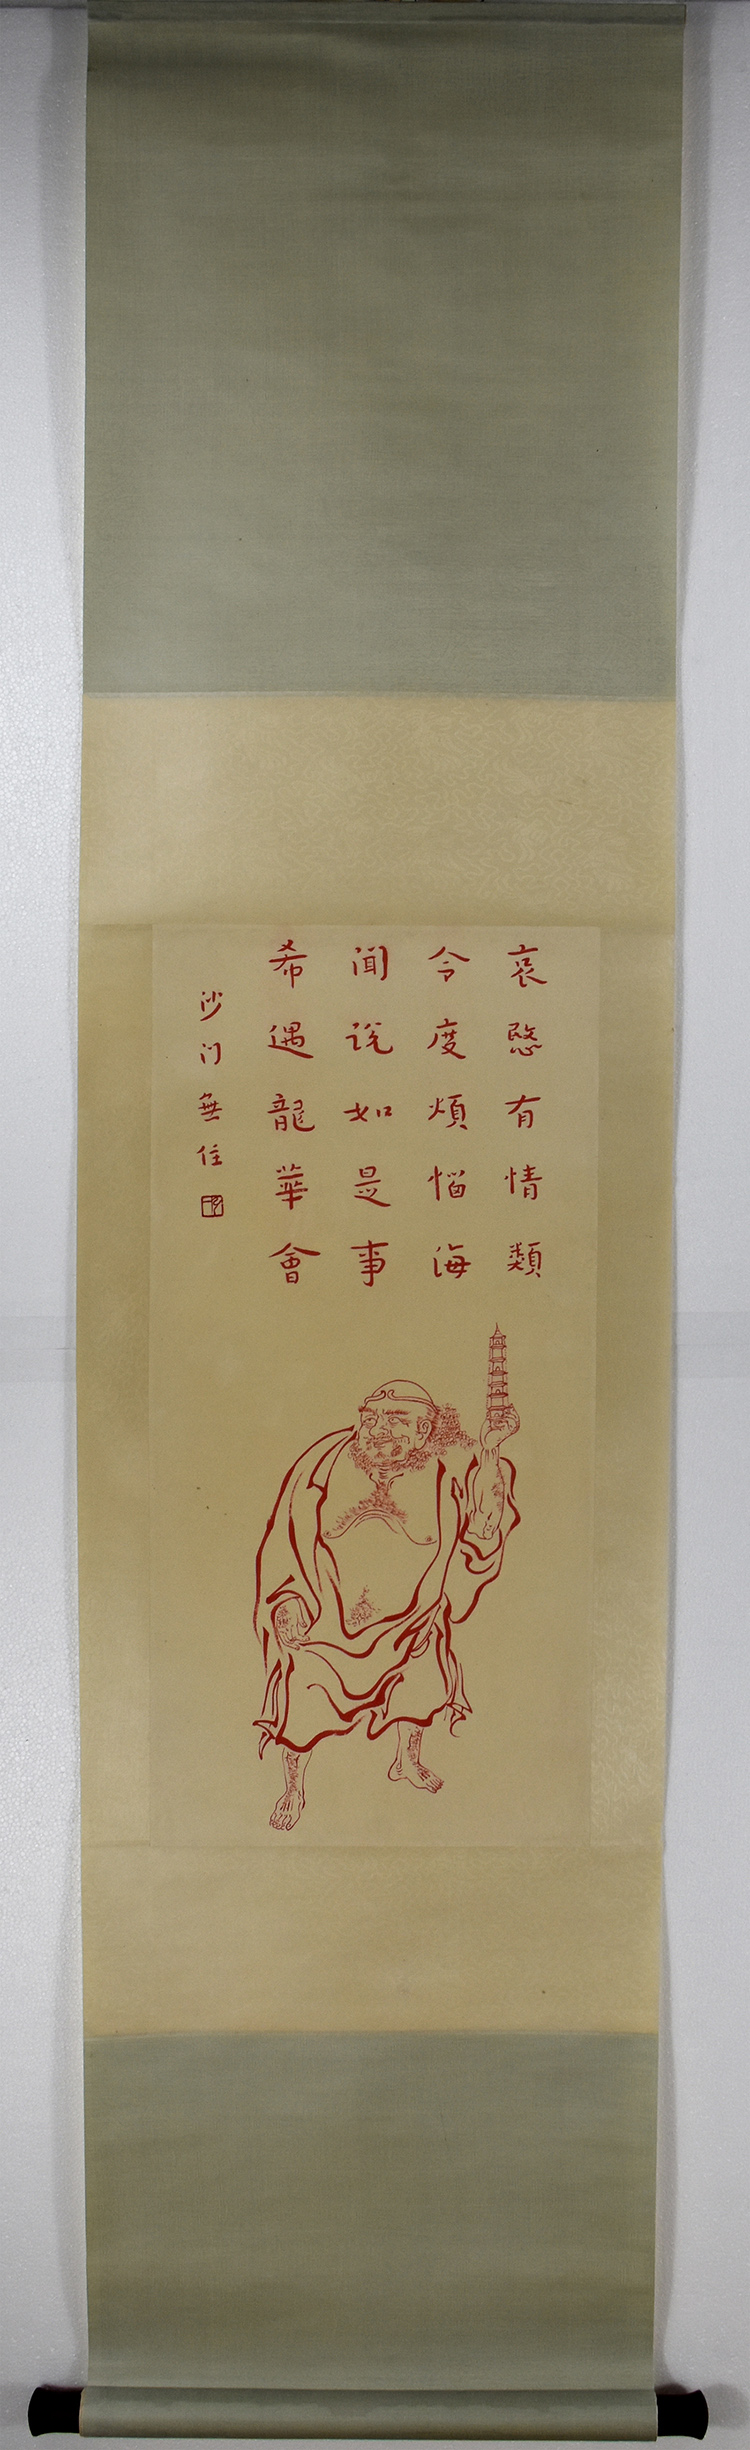 哀愍有情類
令度煩惱海
聞説如是事
希遇龍華會
沙门無住